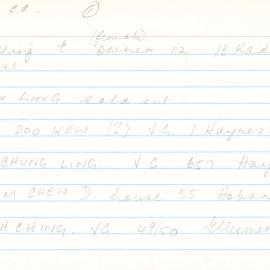 C.C. 1
(female)
E. owner 112 13 Kad
LING. sold out.
DOO KEW (2) V.G. 1 Haynes
CHUNG LING. V G 657 Hay
M CHEW D. house 55 Hoban
H CHING. VG 49/50 Ellesmer